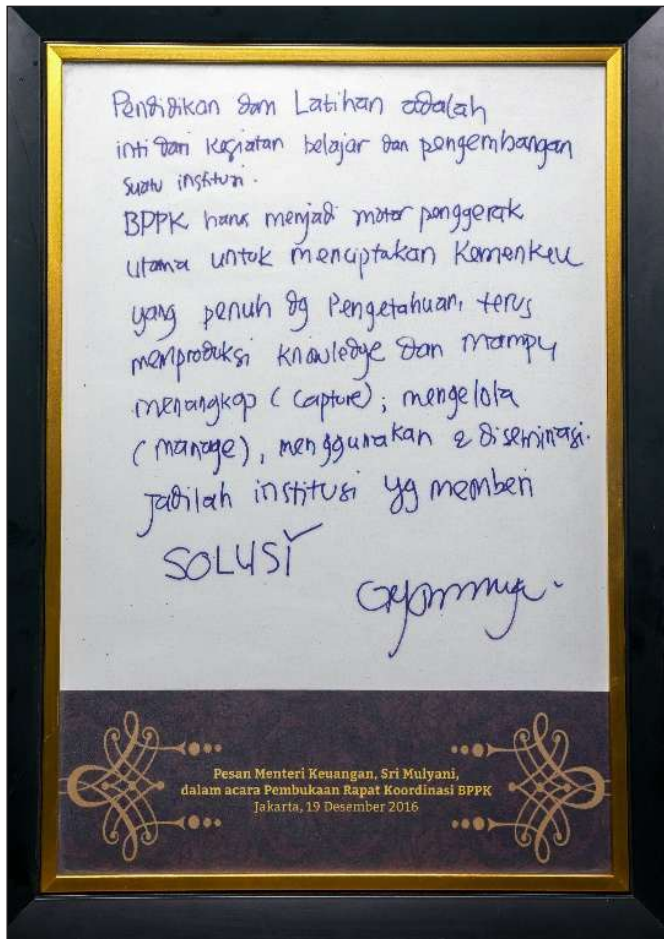 Pendidikan dan Latihan adalah
inti dari kegiatan belajar dan pengembangan
suatu institusi.
BPPK harus menjadi motor penggerak
utama untuk menciptakan Kemenkeu
yang penuh dg Pengetahuan, terus
memproduksi knowledge dan mampu
menangkap (capture), mengelola
(manage), menggunakan & diseminasi.
Jadilah institusi yg memberi
SOLUSI
Pesan Menteri Keuangan, Sri Mulyani,
dalam acara Pembukaan Rapat Koordinasi BPPK
Jakarta, 19 Desember 2016